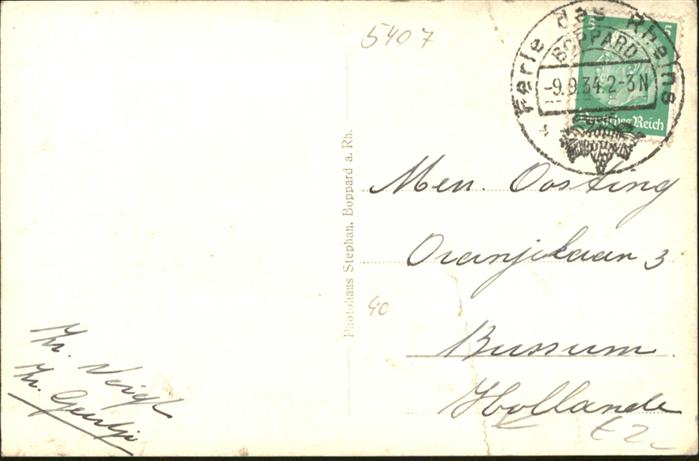 5407
Perle des Rheins
BOPPARD
-9.9.34.2-3N
5 5
Deutsches Reich
Photohaus Stephan, Boppard a. Rh.
Men. Oosting
Oranjelaan 3
Bussum.
Hollande
40
Zr. Voigt
Zr. Geertje
£2-